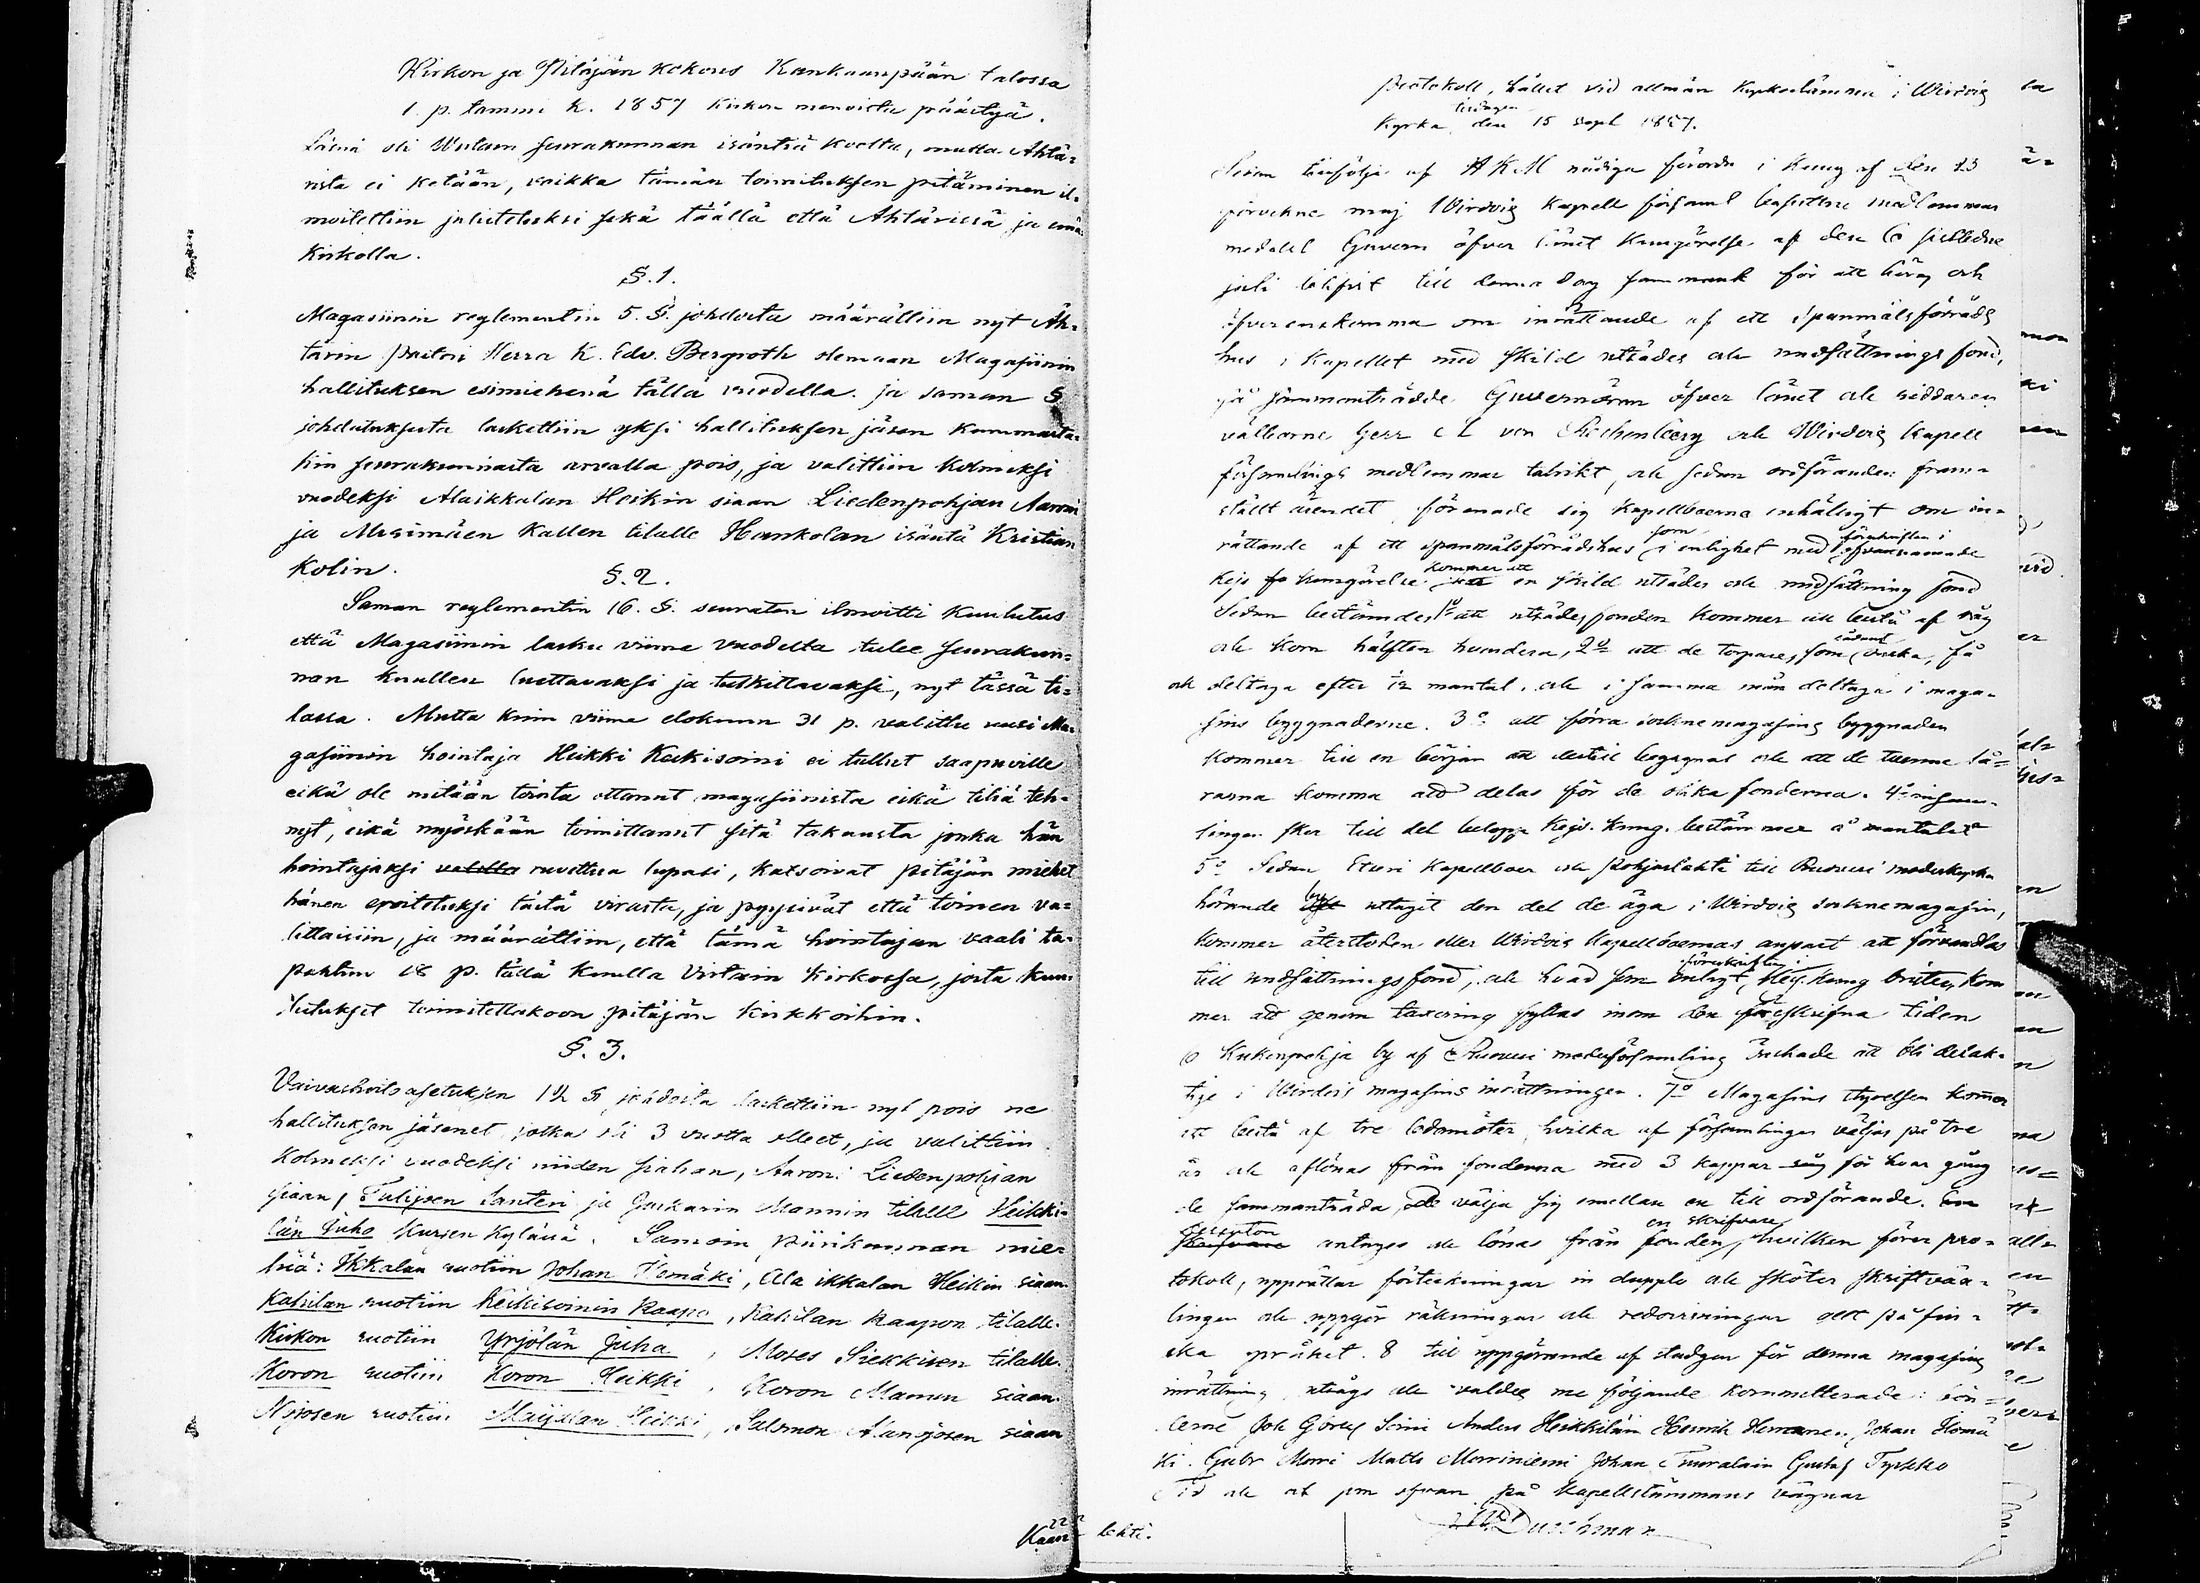 Kirkon ja Pitäjän kokous Kankaanpään talossa
1. p. tammi k. 1857 kirkon menoista päästyä.
Läsnä oli Wirtain seurakunnan isäntiä koolla, mutta Ähtä-
ristä ei ketään, vaikka tämän toimituksen pitäminen il-
moitettiin julistetuksi sekä täällä että Ähtärissä ja emä
kirkolla.
§. 1.
Magasiinin reglementin 5. §. johdosta määrättiin nyt Äh-
tärin pastori Herra K. Edv. Bergroth olemaan Magasiinin
hallituksen esimiehenä tällä vuodella. ja saman §
johdatuksesta laskettiin yksi hallituksen jäsen kummasta-
kin seurakunnasta arvalla pois, ja valittiin kolmeksi
vuodeksi Alaikkalan Heikin siaan Liedenpohjan Aaroni
ja Mesimäen Kallen tilalle Hankolan isäntä Kristian
Kolin.
§. 2.
Saman reglementin 16. §. seuraten ilmoitti kuulutus
että Magasiinin lasku viime vuodelta tulee seurakun-
nan kuullen luettavaksi ja tutkittavaksi, nyt tässä ti-
lassa. Mutta kuin viime elokuun 31 p. valittu uusi Ma-
gasiinin hointaja Heikki Keikisoini ei tullut saapuville
eikä ole mitään töistä ottanut magasiinista eikä tiliä teh-
nyt, eikä myöskään toimittanut sitä takausta jonka hän
hointajaksi valitta ruvettua lupasi, katsoivat pitäjän miehet
hänen eroitetuksi tästä virasta, ja pyysivät että toinen va-
littaisiin, ja määrättiin, että tämä hointajan vaali ta-
pahtuu 18 p. tällä kuulla Virtain kirkossa, josta kuu-
lutukset toimitettakoon pitäjän kirkkoihin.
§. 3.
Vaivashoitoasetuksen 12 § johdosta laskettiin nyt pois ne
hallituksen jäsenet jotka oli 3 vuotta olleet, ja valittiin
kolmeksi vuodeksi niiden siahan, Aaroni Liedenpohjan
siaan, Tulijoen Santeri ja Jaskarin Mannin tilalle Heikki-
län Juho Kurjen kylässä. Samoin piirikunnan mie-
hiä: Ikkalan ruotiin Johan Hemäki, Ala ikkalan Heikin siaan
Kahilan ruotiin Keikisoinin Kaapo, Kahilan Kaapon tilalle.
Kirkon ruotiin Yrjölän Juha, Moses Siekkisen tilalle.
Koron ruotiin Koron Heikki, Koron Mannn siaan.
Nojosen ruotiin Maijalan Heikki, Salomon Alanojosen siaan
Kään- lehti.
Protokoll, hållet vid allmän kyrkostämma i Wirdois
tisdagen
Kyrka den 15 sept 1857.
Sedan tillfölje af HKM nådiga förordn i kung af den 13
förvekne maj Wirdois Kapell församl besuttne medlemmar
medelst Guvern öfver länet kungörelse af den 6 sistledne
juli blifvit till denna dag samman k för att höras och
öfverenskomma om inrättande af ett spanmålsförråds
hus i Kapellet med skild utsädes och undsättnings fond,
så sammanträdde Guvernören öfver länet och riddaren
välborne herr von Rechenberg och Wirdois Kapell
församlings medlemmar talrikt, och sedan ordföranden fram-
ställt ärendet förenade sig kapellboerna enhälligt om in-
rättande af ett spanmålsförrådshus som i enlighet med föreskriften i ofvannämnde
Kejs kungörelse kommer att en skild utsädes och undsättning fond
Sedan bestämdes, 1:o att utsädesfonden kommer att bestå af råg
och korn hälften hvardera, 2:o att de torpare, som sådant önska, få
och deltaga efter 1/12 mantal, och i samma mån deltaga i maga-
sins byggnaderne. 3:o att förra sockne magasins byggnaden
kommer till en början att dertill begagnas och att de tvenne lå-
rarna komma att delas för de olika fonderna. 4:o insam-
lingen sker till det belopp Kejs. kung. bestämmer å mantalet
5:o Sedan Etseri kapellboer och Pohjaslahti till Ruovesi moderkyrka
hörande uttagit den del de äga i Wirdois socknemagasin,
kommer återstoden eller Wirdois kapellboernas anpart att förvandlas
till undsättningsfond, och hvad som enligt föreskriften i Kejs. kung brister, kom
mer att genom taxering fyllas inom den föreskrifna tiden
6 Kukonpohja by af Ruovesi moderförsamling önskade att bli delak-
tige i Wirdois magasins inrättningen. 7:o Magasins styrelsen kommer
att bestå af tre ledamöter, hvilka af församlingen väljas på tre
år och aflönas från fonderna med 3 kappar råg för hvar gång
de sammanträda, och välja sig emellan en till ordförande.
antages och lönas från fonden, en skrifvare hvilken förer pro-
tokoll, upprättar förteckningar in dupplo och sköter skriftväx-
lingen och uppgör räkningar och redovisningar allt på fin-
ska språket. 8 till uppgörande af stadgar för denna magasins
inrättning utsågs och valdes nu följande kommitterade: bön-
derne Joh Görös Soini Anders Heikkilän Henrik Hermanen, Johan Homä
ki. Gabr Morri Matts Morriniemi Johan Tuuralain Gustaf Tyrkko
Tid och ort som ofvan på kapellstämmans vägnar